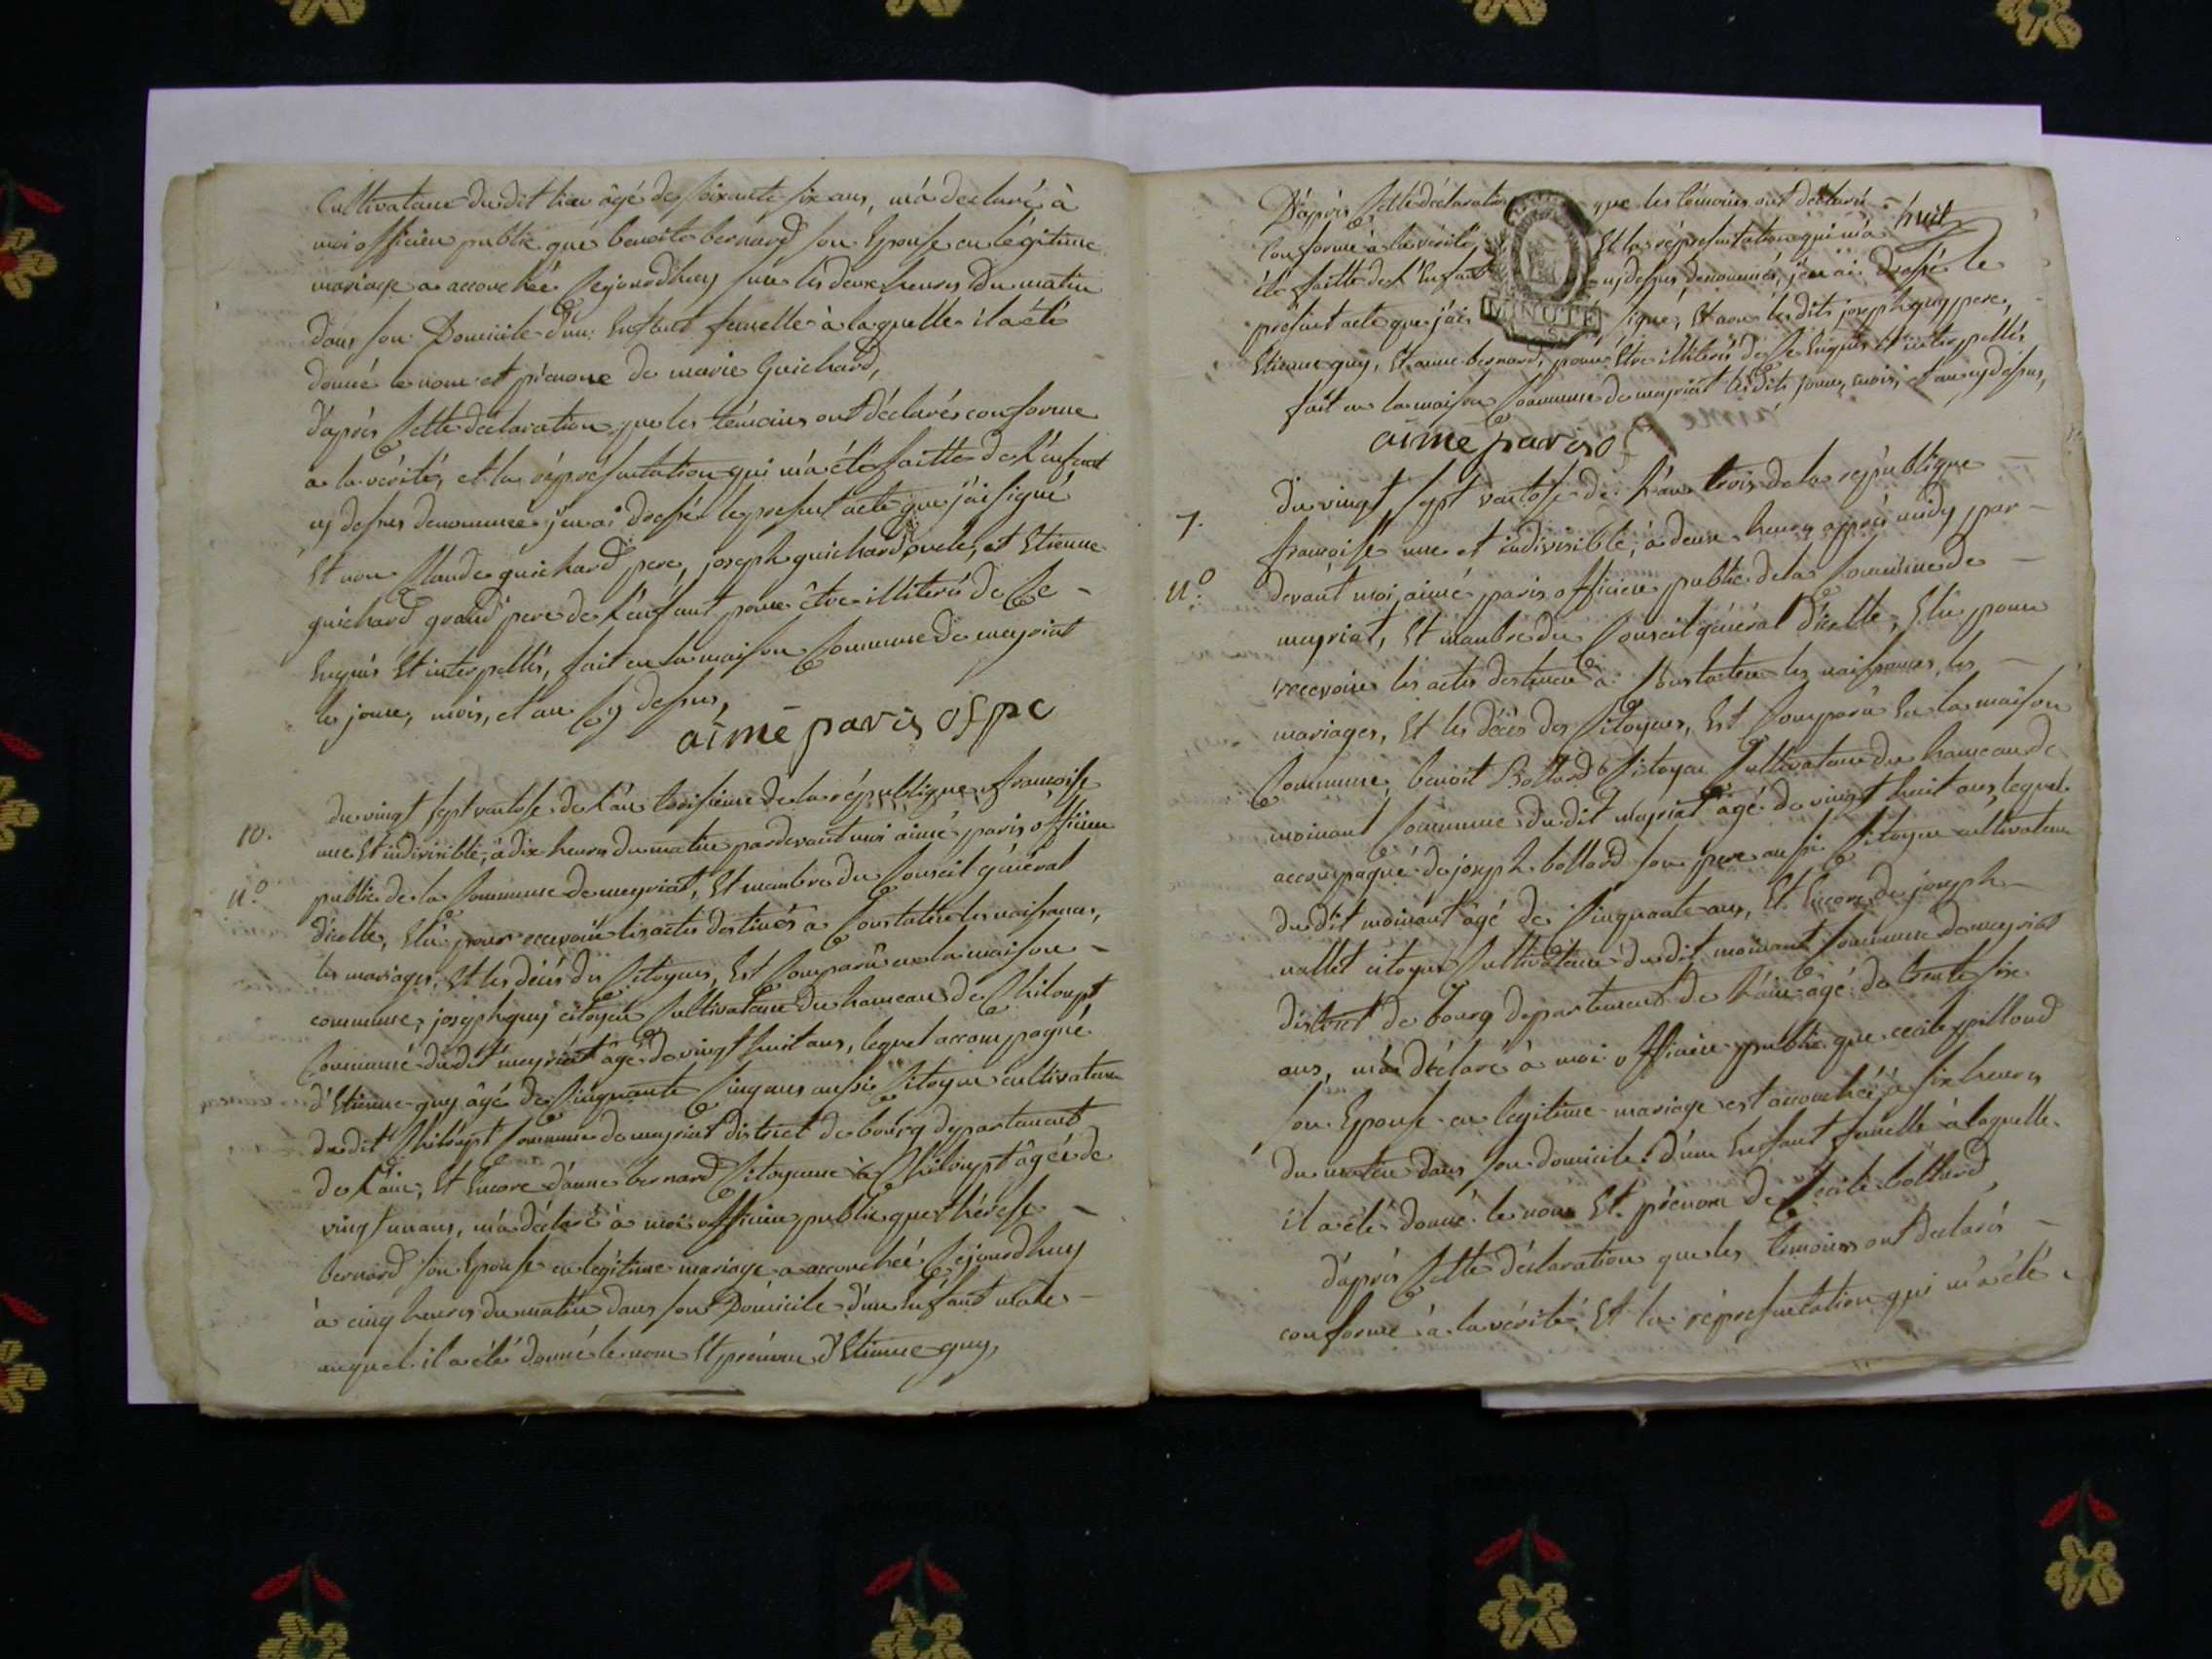 Cultivateur dudit lieu âgé de soixante six ans, m'a declaré à
moi officier public que benoite bernard son Epouse en légitime
mariage a accouchée Cejourdhuy sur les deux heures du matin
dans son Domicile d'un Enfant femelle à laquelle il a été
donné le nom et prénom de marie Guichard,
d'après Cette déclaration que les témoins ont déclarés conforme
a la vérité, et la représentation qui m'a été faitte de l'enfant
cy dessus denommée j'en ai dressé le present acte que j'ai signé
Et non Claude guichard pere, joseph guichard oncle, et Etienne
guichard grand pere de l'enfant pour être illiterés de Ce -
Enquis Et interpellés, fait en la maison Commune de meyriat
les jour, mois, et an Cy dessus,
aimé paris ofpc
10.
du vingt sept vantose de l'an troisieme de la république françoise
une Et indivisible, à dix heures du matin pardevant moi aimé paris officier
n.o
public de la Commune de meyriat, Et manbre du Conseil général
d'icelle, Elû pour recevoir les actes destinés a Constatter les naissances,
les mariages, Et les décés des Citoyens, Est Comparû en la maison -
commune, joseph guy citoyen Cultivateur du hameau de Chiloupt
Commune dudit meyriat âgé de vingt huit ans, lequel accompagné
d'Etienne guy âgé de Cinquante Cinq ans aussi Citoyen cultivateur
dudit Chiloupt Commune de meyriat district de bourg departement
de l'ain, Et Encore d'anne bernard Citoyenne à Chiloupt âgée de
vingt un ans, m'a déclaré à moi officier public que thérese -
bernard son Epouse en légitime mariage a accouchée Cejourdhuy
à cinq heures du matin dans son Domicile d'un Enfant male -
auquel il a été donné le nom Et prénom d'Etienne guy,
huit
D'après Cette déclaration que les témoins ont déclaré -
Conforme à la vérité, Et la représentation qui m'a
été faitte de l'Enfant cy dessus denommé, j'en ai dressé le
present acte que j'ai signé, Et non lesdits joseph guy pere,
MINUTE
Etienne guy, Et anne bernard, pour Etre illiterés de Ce Enquis Et interpellés
fait en la maison Commune de meyriat lesdits jour, mois, et an cy dessus,
aimé paris of
7.
du vingt sept vantose de l'an trois de la republique -
françoise une et indivisible, à deux heures après midy par -
n.o
devant moi aimé paris officier public de la Commune de -
meyriat, Et manbre du Conseil général d'icelle, Elu pour
recevoir les actes destinés à Constatter les naissances, les -
mariages, Et les décès des Citoyens, Est Comparû En la maison
Commune, benoit Bottard Citoyen Cultivateur du hameau de
moinant Commune dudit meyriat âgé de vingt huit ans, lequel
accompagné de joseph bottard son pere aussi Citoyen cultivateur
dudit moinant âgé de Cinquante ans, Et Encore de joseph -
vallet citoyen Cultivateur dudit moinant Commune de meyriat
district de bourg departement de l'ain âgé de trente six
ans, m'a déclaré à moi officier public que cecile pilloud
son Epouse en legitime mariage est accouchée à six heures
du matin dans son domicile d'un Enfant femelle à laquelle
il a été donné le nom Et prénom de Cecile bottard,
d'après Cette déclaration que les temoins ont declarés -
conforme à la vérité, Et la représentation qui m'a été